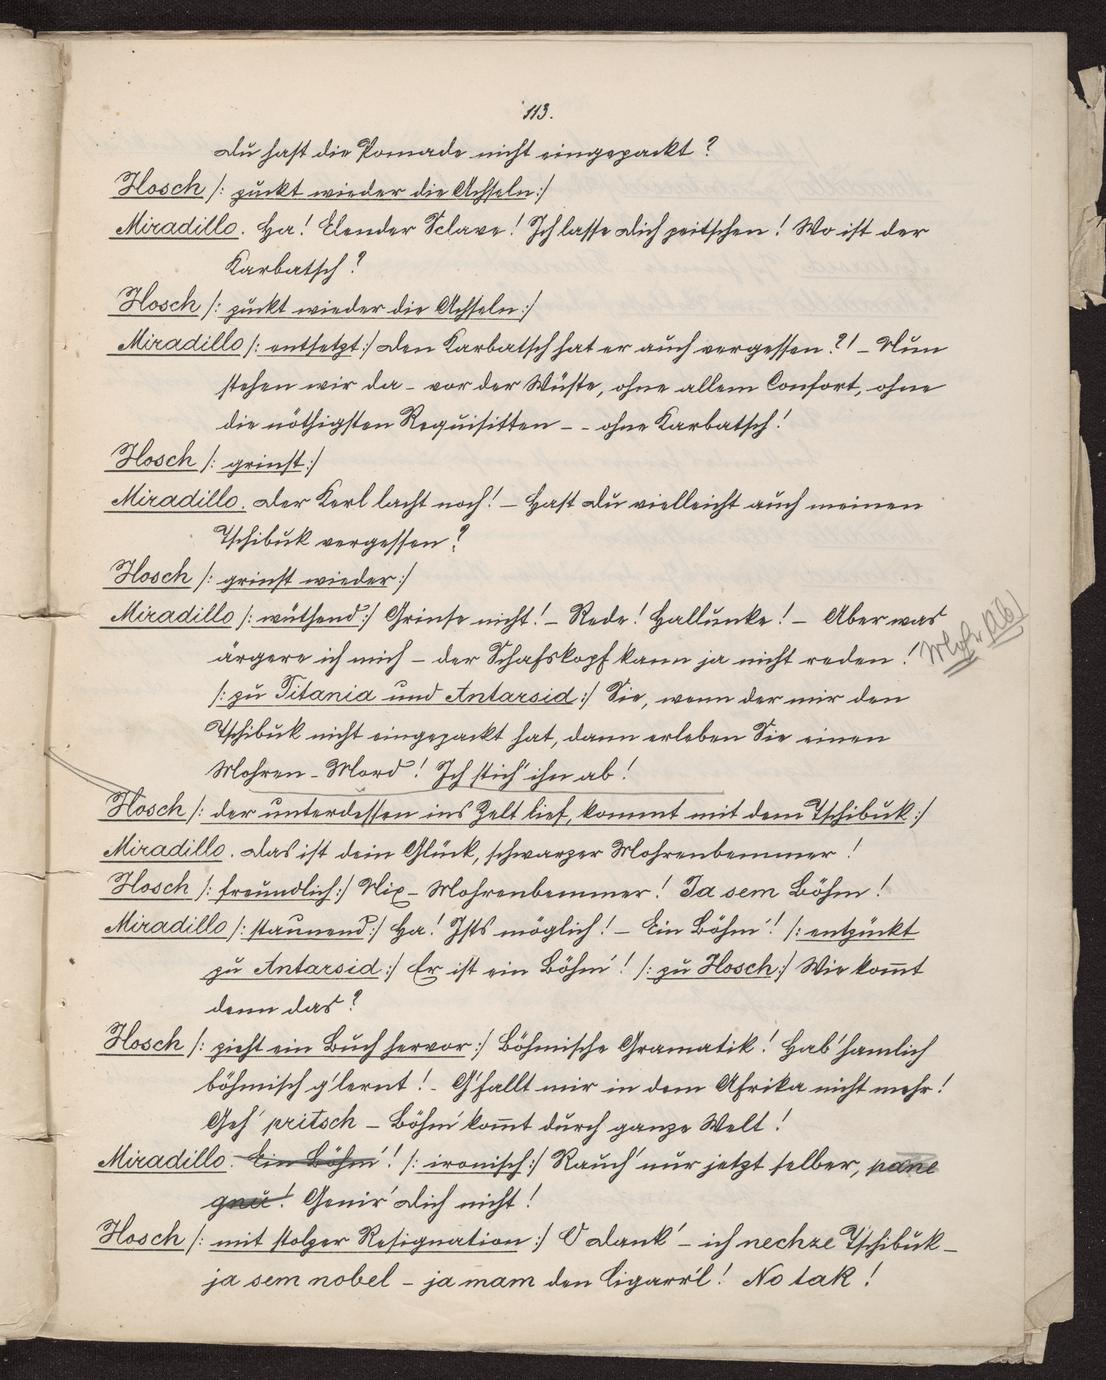 113.
Du hast die Pomade nicht eingepackt?
Hosch /: zuckt wieder die Achseln :/
Miradillo. Ha! Elender Sclave! Ich lasse dich peitschen! Wo ist der
Karbatsch?
Hosch /: zuckt wieder die Achseln :/
Miradillo /: entsetzt :/ Den Karbatsch hat er auch vergessen?! – Nun
stehen wir da – vor der Wüste, ohne allem Confort, ohne
die nöthigsten Requisitten – – ohne Karbatsch!
Hosch /: grinst :/
Miradillo. Der Kerl lacht noch! – Hast du vielleicht auch meinen
Tschibuk vergessen?
Hosch /: grinst wieder :/
Miradillo /: wüthend :/ Grinse nicht! – Rede! Hallunke! – Aber was
ärgere ich mich – der Schafskopf kann ja nicht reden!
Mohr Ab
/: zu Titania und Antarsid :/ Sie, wenn der mir den
Tschibuk nicht eingepackt hat, dann erleben Sie einen
Mohren – Mord! Ich stich' ihn ab!
Hosch /: der unterdessen ins Zelt lief, kommt mit dem Tschibuk :/
Miradillo. Das ist dein Glück, schwarzer Mohrenbemmer!
Hosch /: freundlich :/ Nix – Mohrenbemmer! Ja sem Böhm!
Miradillo /: staunend :/ Ha! Ists möglich! – Ein Böhm'! /: entzückt
zu Antarsid :/ Er ist ein Böhm'! /: zu Hosch :/ Wie kom̄t
denn das?
Hosch /: zieht ein Buch hervor :/ Böhmische Gramatik! Hab' hamlich
böhmisch g'lernt! – G'fallt mir in dem Afrika nicht mehr!
Geh' pritsch – Böhm' kom̄t durch ganze Welt!
Miradillo. Ein Böhm'! /: ironisch :/ Rauch' nur jetzt selber, pane
gnu! Genir' dich nicht!
Hosch /: mit stolzer Resignation :/ O dank' – ich nechze Tschibuk –
ja sem nobel – ja mam den Cigarr'l! No tak!